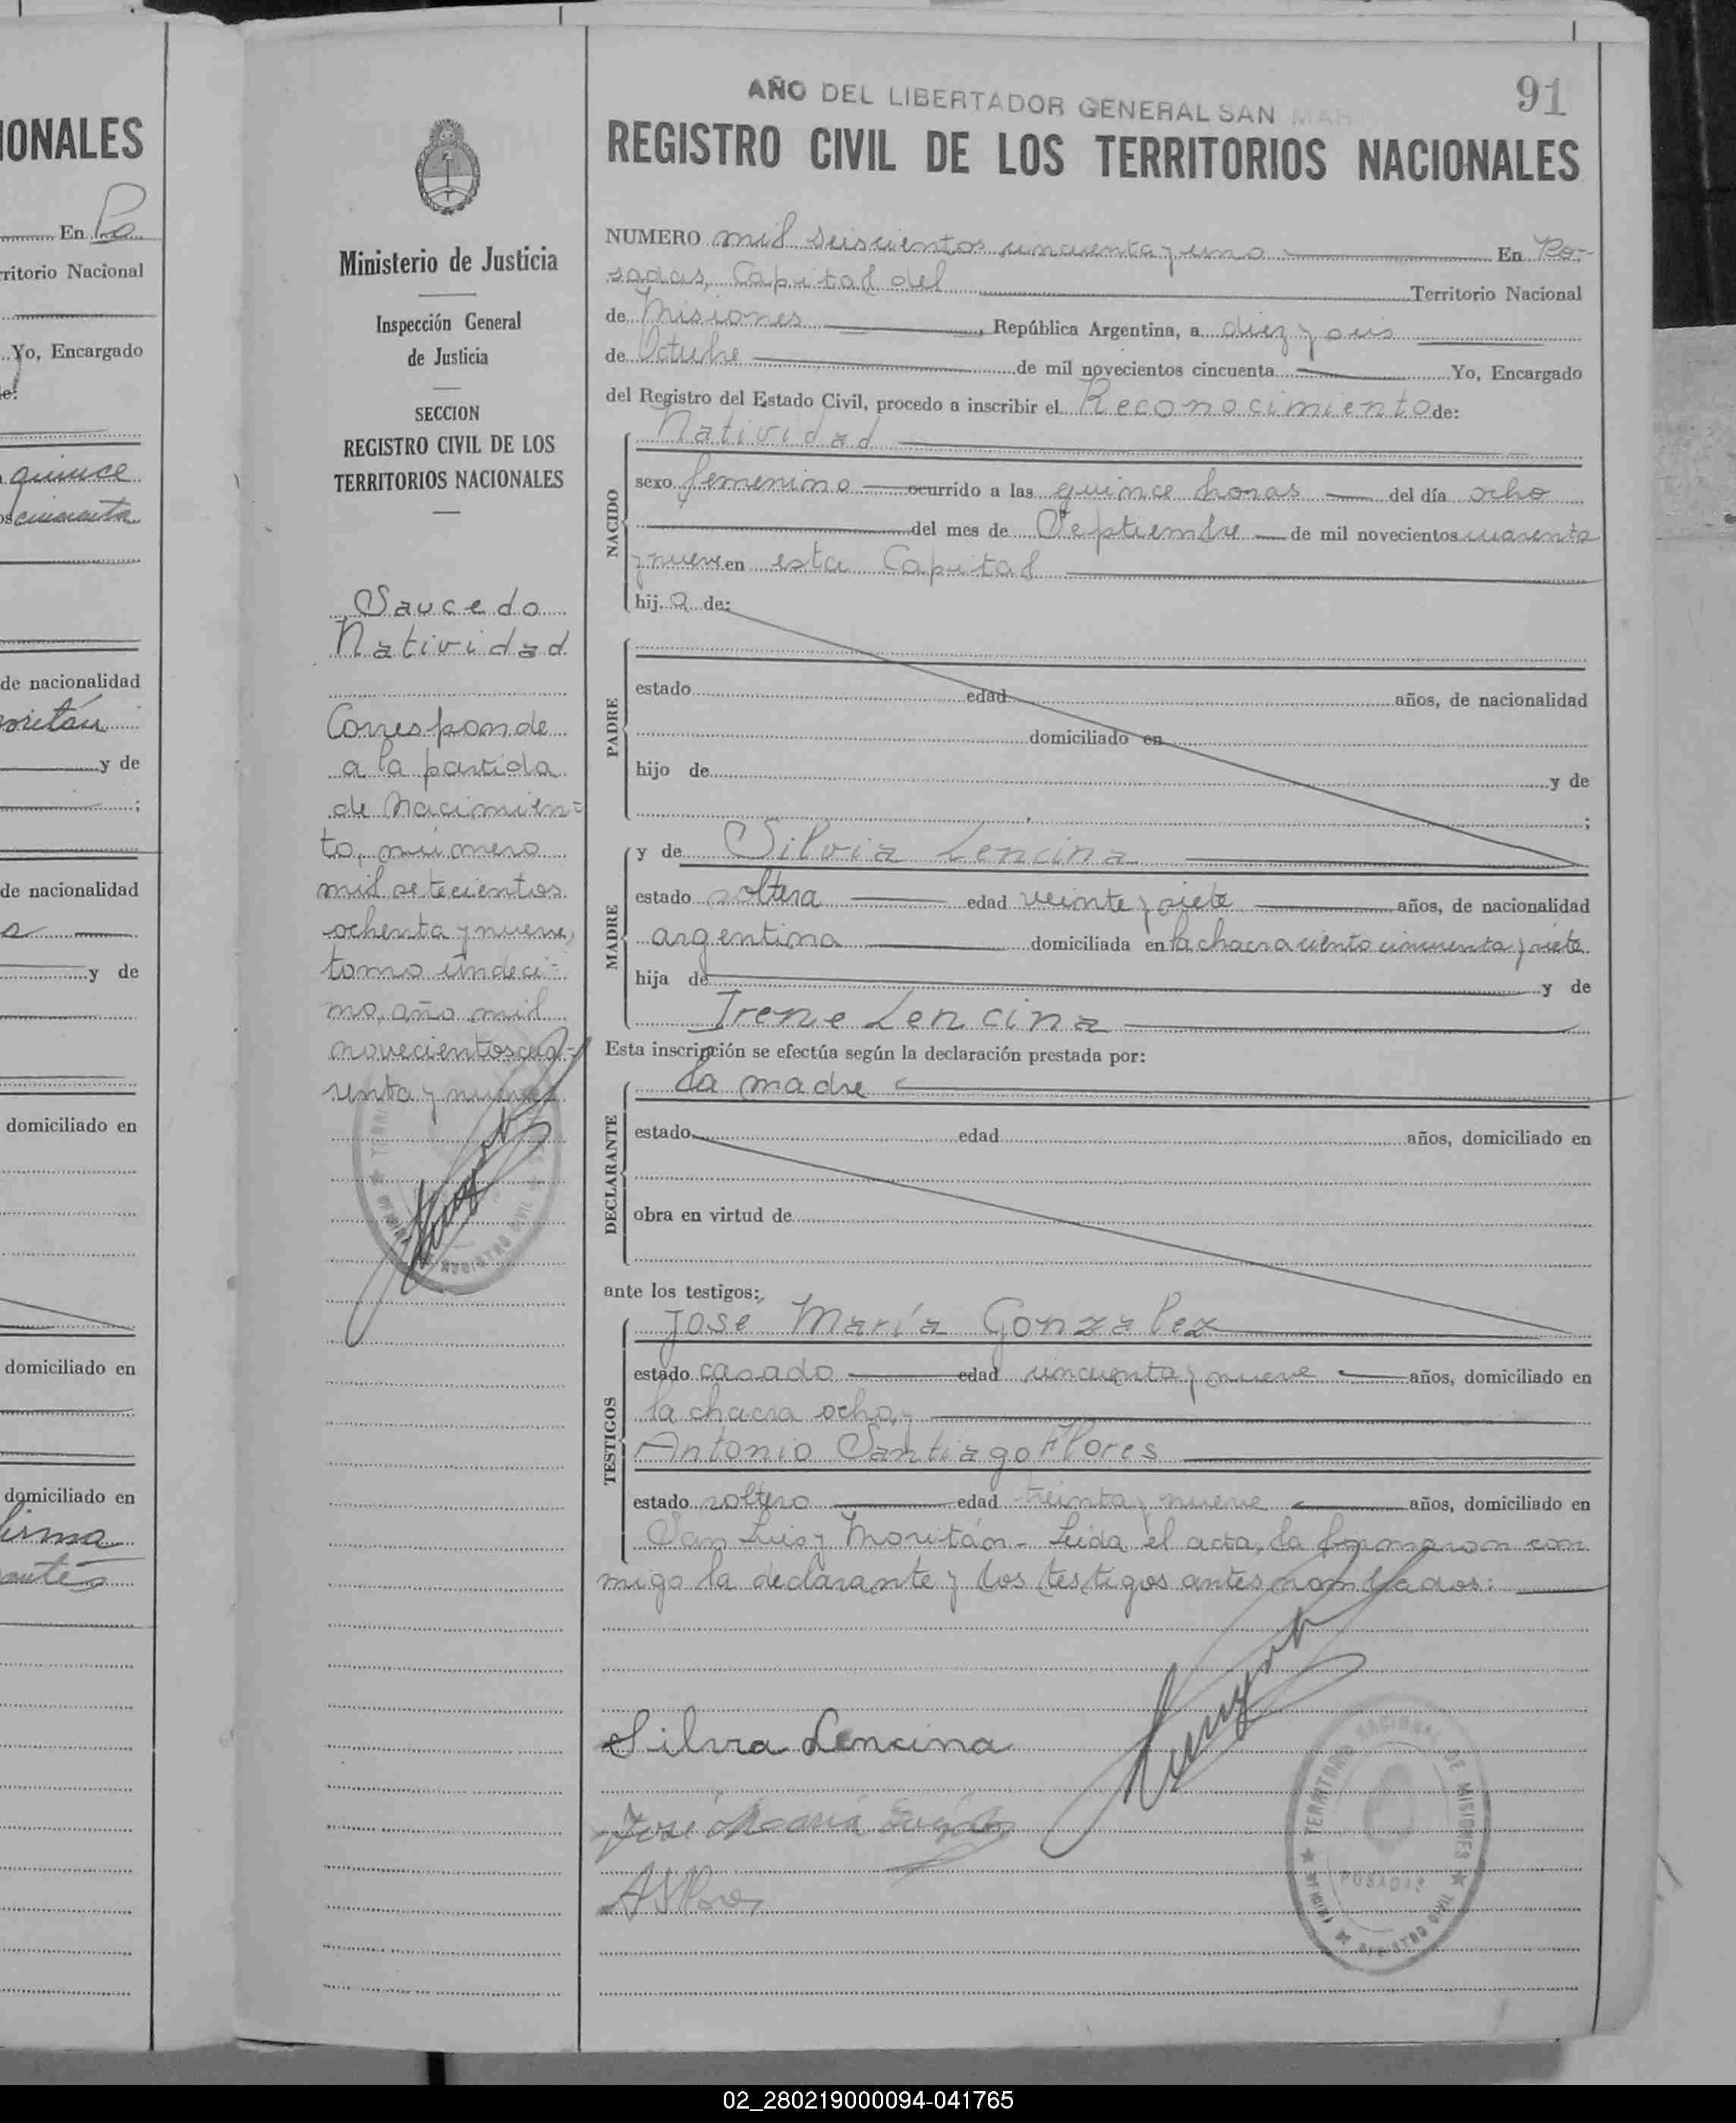 IONALES
En Po
rritorio Nacional
Yo, Encargado
de:
quince
os cincuenta
de nacionalidad
y de
;
de nacionalidad
y de
domiciliado en
domiciliado en
domiciliado en
firma
Ministerio de Justicia
Inspección General
de Justicia
SECCION
REGISTRO CIVIL DE LOS
TERRITORIOS NACIONALES
Saucedo
Natividad
Corresponde
a la partida
de Nacimien=
to, número
mil setecientos
ochenta y nueve,
tomo úndeci=
mo, año mil
novecientos cua=
renta y nueve
AÑO DEL LIBERTADOR GENERAL SAN MAR
91
REGISTRO CIVIL DE LOS TERRITORIOS NACIONALES
NUMERO mil seiscientos cincuenta y uno En Po-
sadas, Capital del Territorio Nacional
de Misiones, República Argentina, a diez y seis
de Octubre de mil novecientos cincuenta Yo, Encargado
del Registro del Estado Civil, procedo a inscribir el Reconocimiento de:
Natividad
NACIDO
sexo femenino ocurrido a las quince horas del día ocho
del mes de Septiembre de mil novecientos cuarenta
y nueve en esta Capital
hij a de:
PADRE
estado edad años, de nacionalidad
domiciliado en
hijo de y de
;
MADRE
y de Silvia Lencina
estado soltera edad veinte y siete años, de nacionalidad
argentina domiciliada en la chacra ciento cincuenta y siete
hija de y de
Irene Lencina
Esta inscripción se efectúa según la declaración prestada por:
la madre
DECLARANTE
estado edad años, domiciliado en
obra en virtud de
ante los testigos:
José María Gonzalez
TESTIGOS
estado casado edad cincuenta y nueve años, domiciliado en
la chacra ocho, y
Antonio Santiago Flores
estado soltero edad treinta y nueve años, domiciliado en
San Luis y Moritán. Leida el acta, la firmaron con
migo la declarante y los testigos antes nombrados:
Silvia Lencina
José María
TERRITORIO NACIONAL DE MISIONES
POSADAS
OFICINA DE REGISTRO CIVIL
02_280219000094-041765